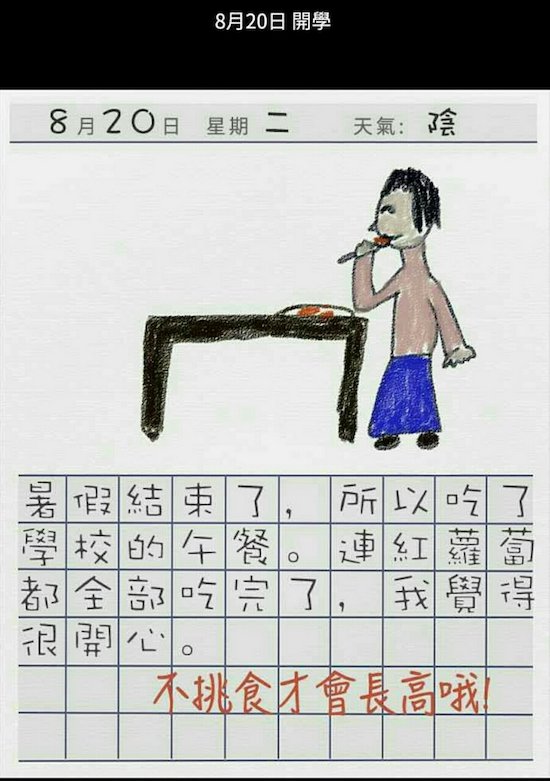 8月20日 開學
8月20日 星期 二 天氣: 陰
暑假結束了，所以吃了
學校的午餐。連紅蘿蔔
都全部吃完了，我覺得
很開心。
不挑食才會長高哦!